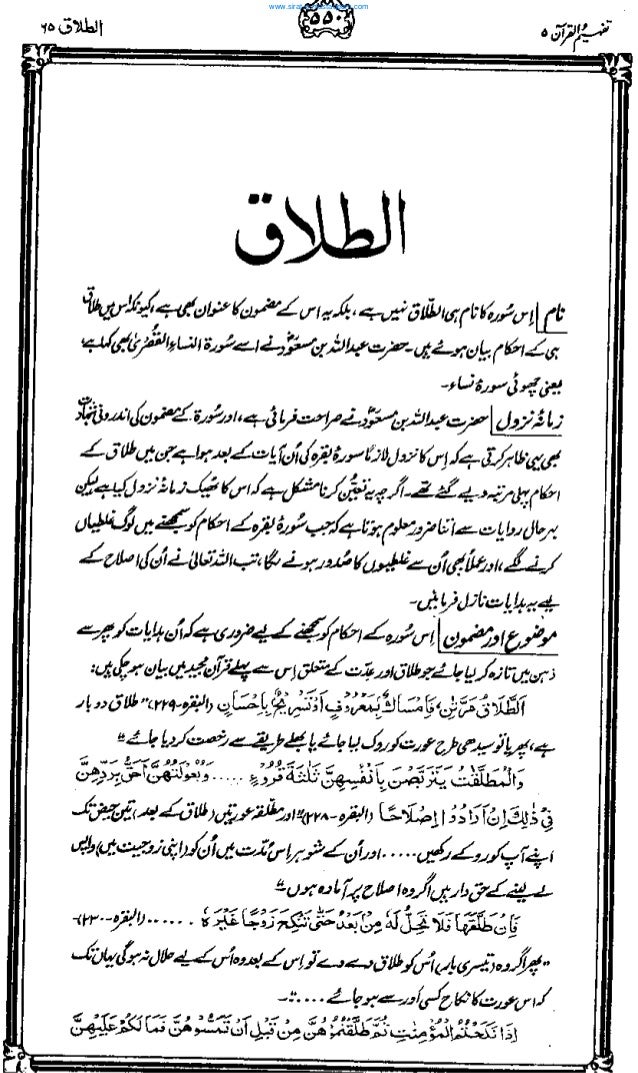 www.sirat-e-mustaqeem.com
تفہیم القرآن ۵
۵۵۰
الطلاق ۶۵
الطلاق
نام | اِس سُورہ کا نام ہی الطّلاق نہیں ہے، بلکہ یہ اس کے مضمون کا عنوان بھی ہے، کیونکہ اس میں طلاق
ہی کے احکام بیان ہوئے ہیں۔ حضرت عبداللہ بن مسعودؓ نے اسے سُورۃ النساءِ القُصْریٰ بھی کہا ہے،
یعنی چھوٹی سورۂ نساء۔
زمانۂ نزول | حضرت عبداللہ بن مسعودؓ نے صراحت فرمائی ہے، اور سُورۃ کے مضمون کی اندرونی شہادت
بھی یہی ظاہر کرتی ہے کہ اِس کا نزول لازمًا سورۂ بقرہ کی اُن آیات کے بعد ہوا ہے جن میں طلاق کے
احکام پہلی مرتبہ دیے گئے تھے۔ اگرچہ یہ تعیُّن کرنا مشکل ہے کہ اس کا ٹھیک زمانۂ نزول کیا ہے، لیکن
بہرحال روایات سے اتنا ضرور معلوم ہوتا ہے کہ جب سُورۂ بقرہ کے احکام کو سمجھنے میں لوگ غلطیاں
کرنے لگے، اور عملاً بھی اُن سے غلطیوں کا صُدور ہونے لگا، تب اللہ تعالیٰ نے اُن کی اصلاح کے
لیے یہ ہدایات نازل فرمائیں۔
موضوع اور مضمون | اِس سُورہ کے احکام کو سمجھنے کے لیے ضروری ہے کہ اُن ہدایات کو پھر سے
ذہن میں تازہ کر لیا جائے جو طلاق اور عدّت کے متعلق اِس سے پہلے قرآن مجید میں بیان ہو چکی ہیں:
اَلطَّلَاقُ مَرَّتٰنِ، فَاِمْسَاكٌ بِمَعْرُوْفٍ اَوْ تَسْرِيْحٌ بِاِحْسَانٍ (البقرہ-۲۲۹) "طلاق دو بار
ہے، پھر یا تو سیدھی طرح عورت کو روک لیا جائے یا بھلے طریقے سے رخصت کر دیا جائے"
وَالْمُطَلَّقٰتُ يَتَرَبَّصْنَ بِاَنْفُسِهِنَّ ثَلٰثَةَ قُرُوْءٍ ..... وَبُعُوْلَتُهُنَّ اَحَقُّ بِرَدِّهِنَّ
فِیْ ذٰلِكَ اِنْ اَرَادُوْا اِصْلَاحًا (البقرہ-۲۲۸) "اور مطلّقہ عورتیں (طلاق کے بعد) تین حیض تک
اپنے آپ کو روکے رکھیں ..... اور اُن کے شوہر اِس مُدّت میں اُن کو (اپنی زوجیت میں) واپس
لے لینے کے حق دار ہیں اگر وہ اصلاح پر آمادہ ہوں"
فَاِنْ طَلَّقَهَا فَلَا تَحِلُّ لَهُ مِنْ بَعْدُ حَتّٰى تَنْكِحَ زَوْجًا غَيْرَهُ ...... (البقرہ-۲۳۰)-
"پھر اگر وہ (تیسری بار) اُس کو طلاق دے دے تو اِس کے بعد وہ اُس کے لیے حلال نہ ہو گی یہاں تک
کہ اس عورت کا نکاح کسی اور سے ہو جائے ....."۔
اِذَا نَكَحْتُمُ الْمُؤْمِنٰتِ ثُمَّ طَلَّقْتُمُوْهُنَّ مِنْ قَبْلِ اَنْ تَمَسُّوْهُنَّ فَمَا لَكُمْ عَلَيْهِنَّ